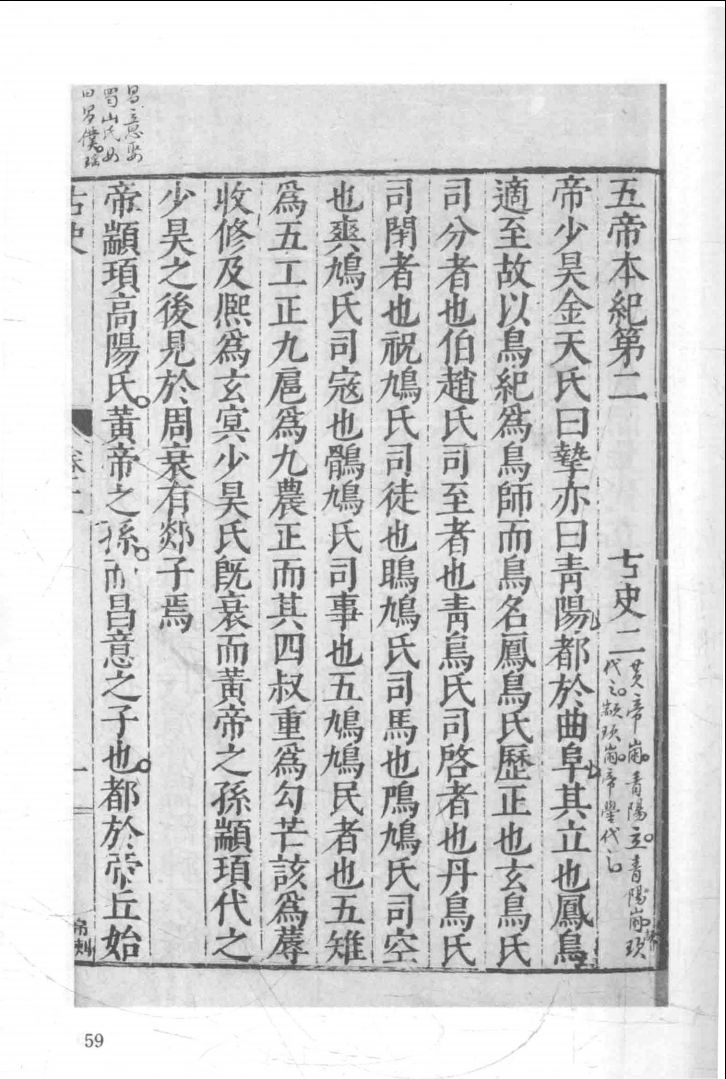 五帝本紀第二 古史二
帝少昊金天氏曰摯亦曰青陽都於曲阜其立也鳳鳥
適至故以鳥紀爲鳥師而鳥名鳳鳥氏歷正也玄鳥氏
司分者也伯趙氏司至者也青鳥氏司啓者也丹鳥氏
司閉者也祝鳩氏司徒也鴡鳩氏司馬也鳲鳩氏司空
也爽鳩氏司寇也鶻鳩氏司事也五鳩鳩民者也五雉
爲五工正九扈爲九農正而其四叔重爲勾芒該爲蓐
收修及熈爲玄冥少昊氏旣衰而黃帝之孫顓頊代之
少昊之後見於周衰有郯子焉
帝顓頊高陽氏黃帝之孫而昌意之子也都於帝丘始
古史
卷二
一
黃帝崩青陽立青陽崩
代之顓頊崩帝嚳代之
昌意娶
蜀山氏女
曰昌僕
59